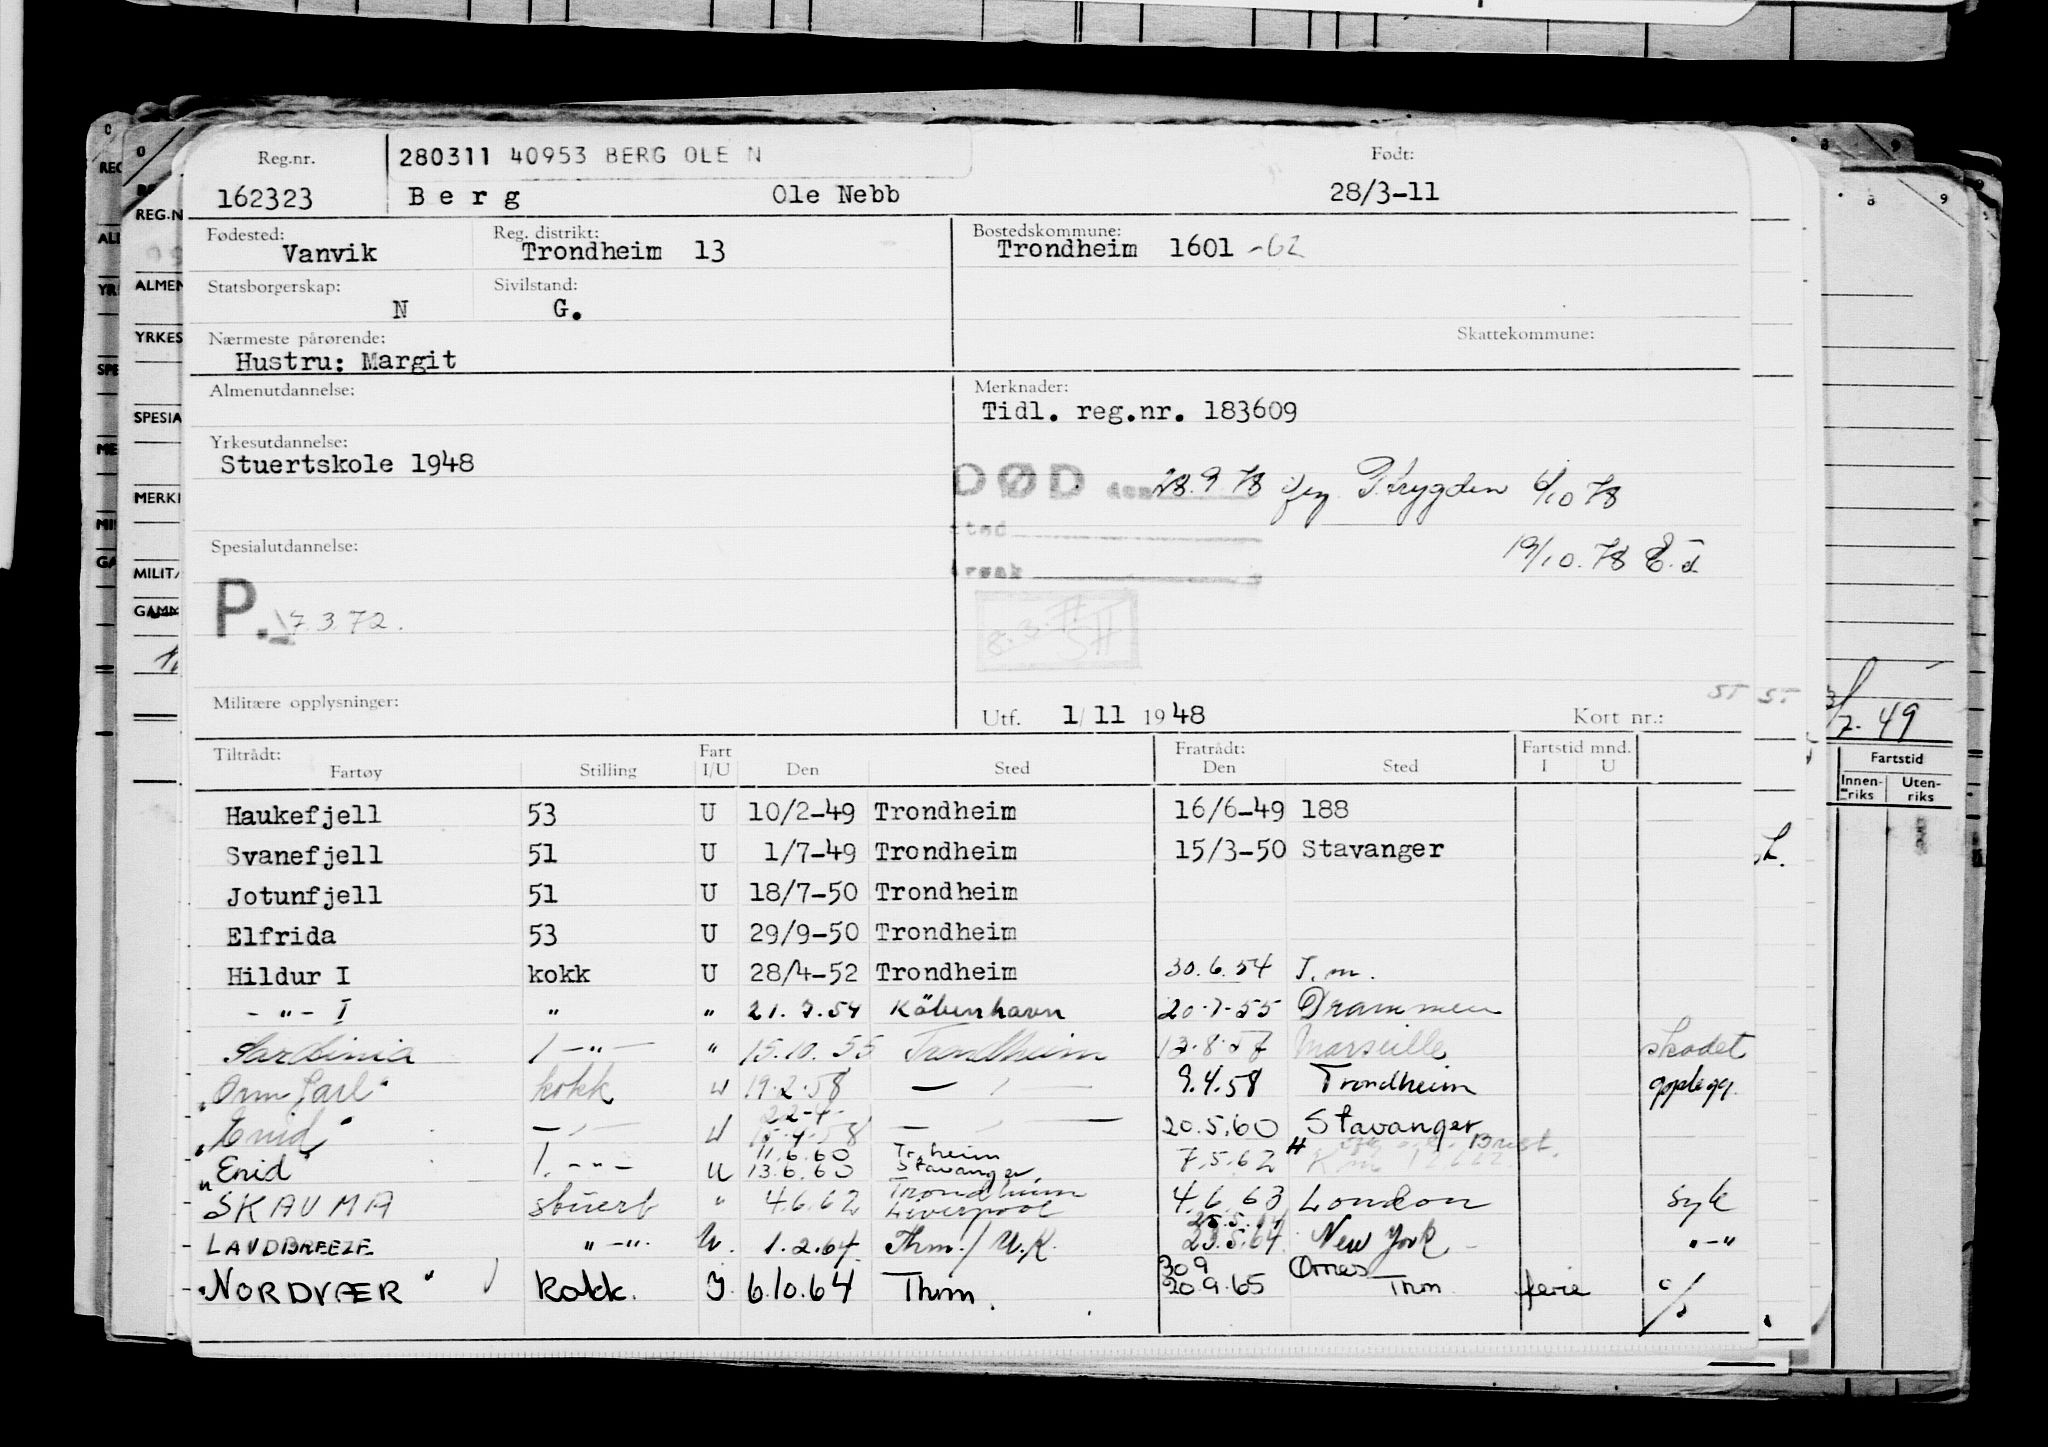 Reg.nr. 280311 40953 BERG OLE N Født:
162323 Berg Ole Nebb 28/3-11
Fødested: Reg. distrikt: Bostedskommune:
Vanvik Trondheim 13 Trondheim 1601 -62
Statsborgerskap: Sivilstand:
N G.
Nærmeste pårørende: Skattekommune:
Hustru: Margit
Almenutdannelse: Merknader:
Tidl. reg.nr. 183609
Yrkesutdannelse:
Stuertskole 1948
DØD den 28.9.78 P.trygden 4/10 78
sted
Spesialutdannelse: 19/10.78
årsak
P. 7.3.72.
Militære opplysninger: ST ST
Utf. 1/11 1948 Kort nr.:
Tiltrådt: Fart Fratrådt: Fartstid mnd.
Fartøy Stilling I/U Den Sted Den Sted I U
Haukefjell 53 U 10/2-49 Trondheim 16/6-49 188
Svanefjell 51 U 1/7-49 Trondheim 15/3-50 Stavanger
Jotunfjell 51 U 18/7-50 Trondheim
Elfrida 53 U 29/9-50 Trondheim
Hildur I kokk U 28/4-52 Trondheim 30.6.54 T.m.
- " - I " " 21.7.54 Köbenhavn 20.7.55 Drammen
Sardinia 1 - " - " 15.10.55 Trondheim 13.8.57 Marseille skadet
"Orm Jarl" kokk U 19.2.58 — " — 9.4.58 Trondheim opplegg.
22-4-
"Enid" — " — U 15.4.58 — " — 20.5.60 Stavanger
11.6.60 Tr.heim
"Enid" 1. - " - U 13.6.60 Stavanger 7.5.62
Trondheim
SKAUMA stuert " 4.6.62 Liverpool 4.6.63 London syk
25.5.64
LANDBREEZE " - ". U. 1.2.64 Thm./U.K. 23.5.64 New York " - "
30 9 Ørnes
"NORDVÆR" kokk. I. 6.10.64 Thm. 20.9.65 Thm ferie
REG.N
ALMEN
YRKES
SPESIA
MERKI
MILIT
GAMM
7-49
Fartstid
Innenriks Utenriks